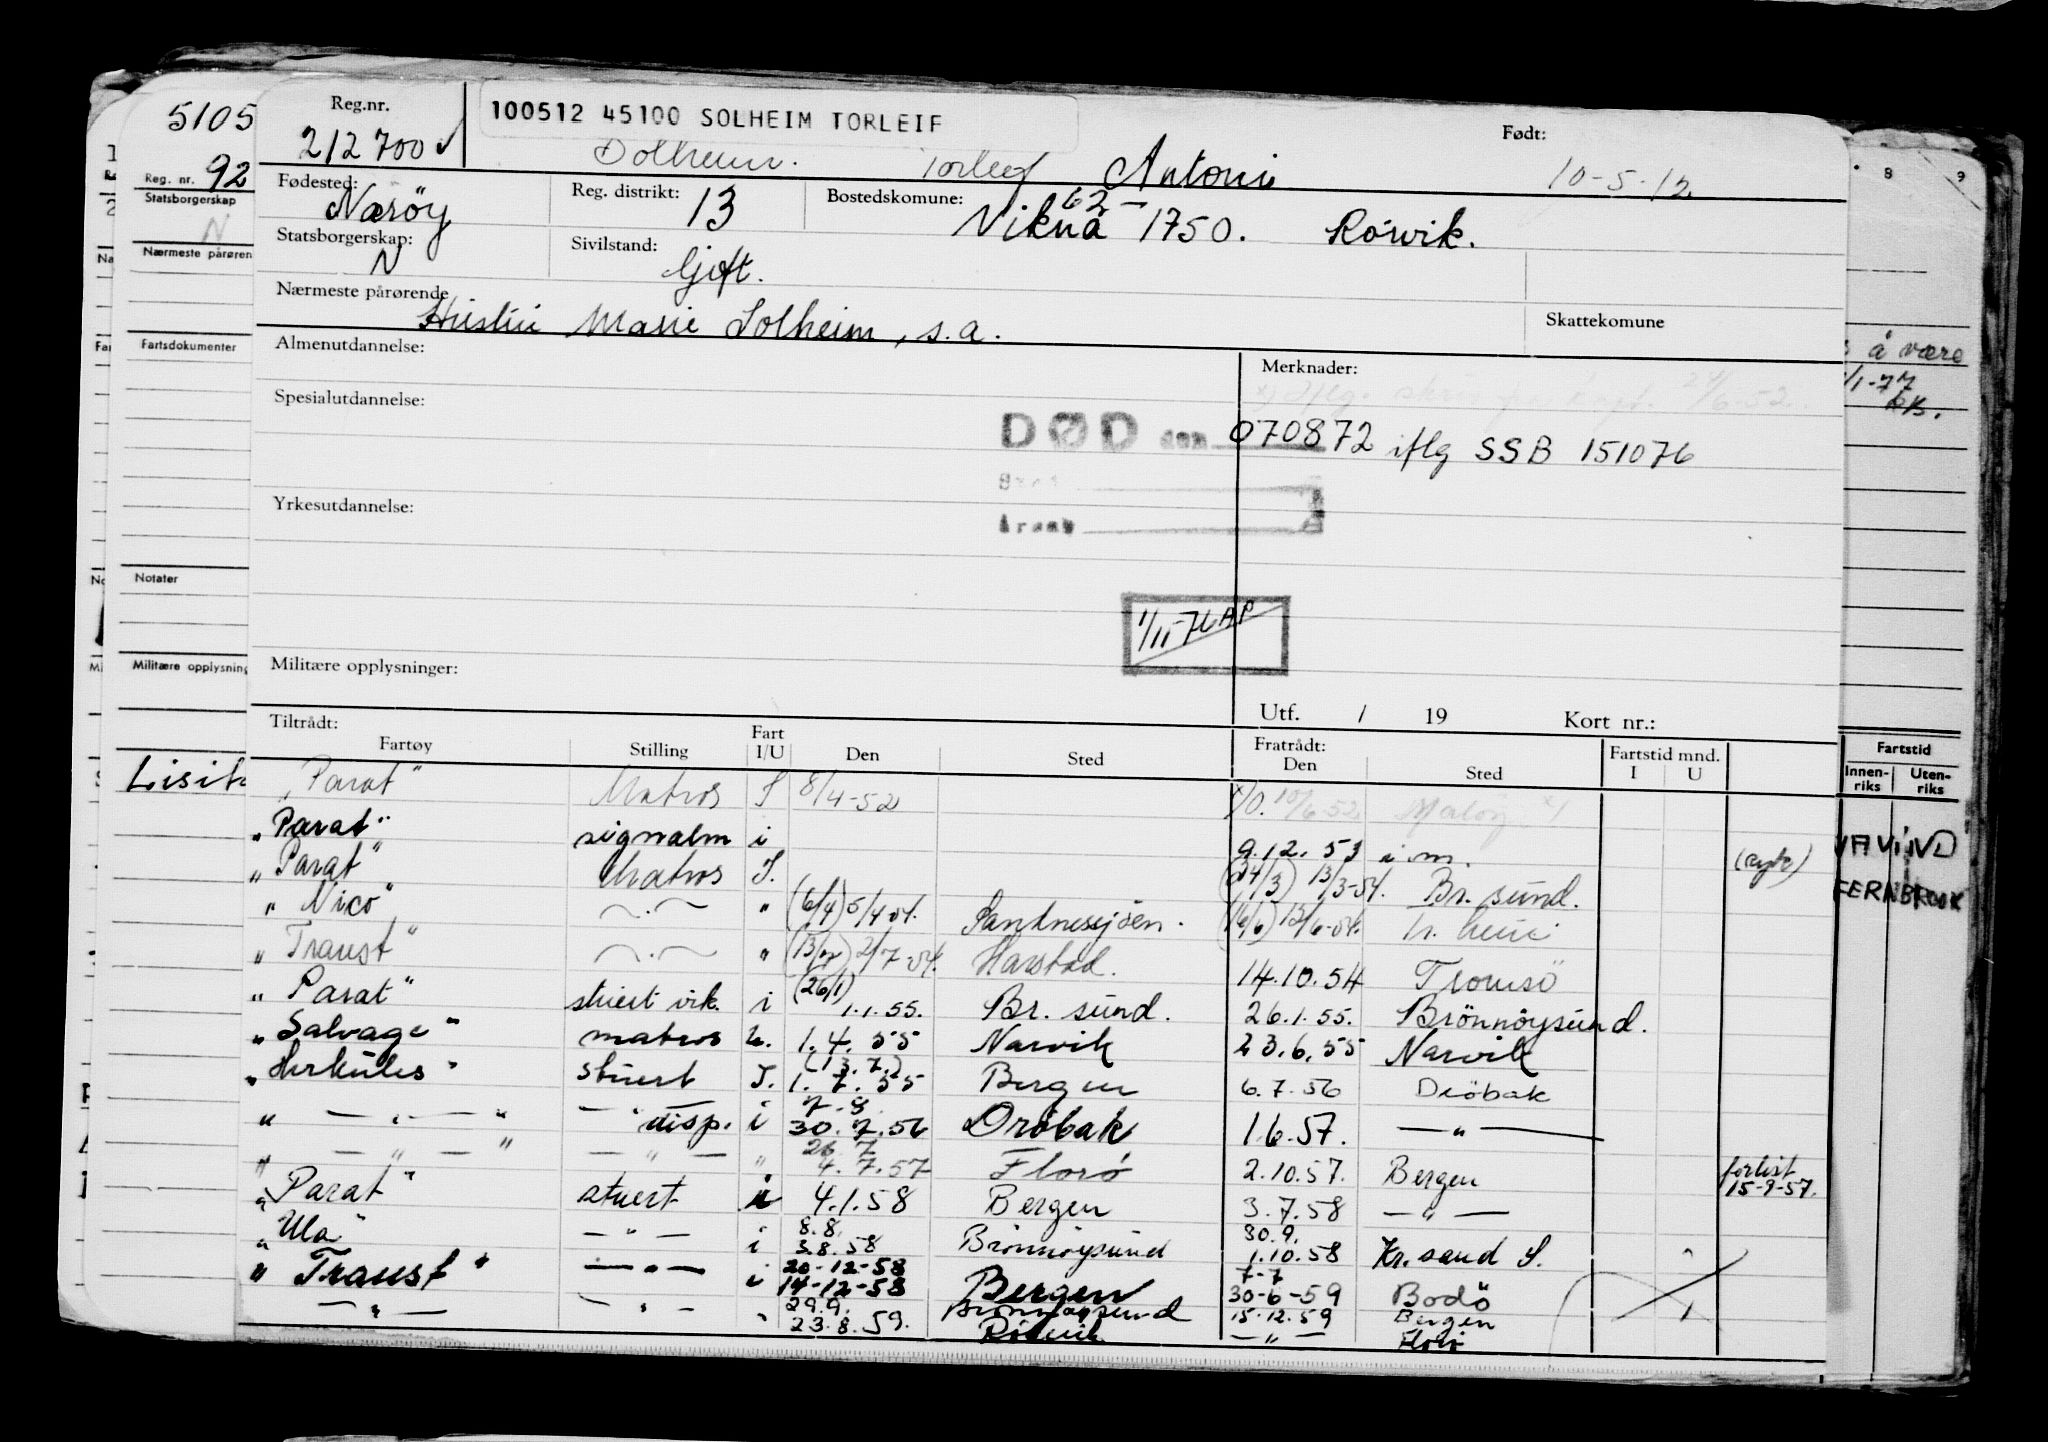 5105
Reg. nr. 92
Statsborgerskap
N
Nærmeste pårøren
Fartsdokumenter
Notater
Militære opplysning
Reg.nr.
212700
100512 45100 SOLHEIM TORLEIF
Solheim. Torleif Antoni
Født:
10-5-12
Fødested:
Nærøy
Reg. distrikt:
13
Bostedskomune:
Vikna 1750. Rörvik.
62
Statsborgerskap:
N
Sivilstand:
Gift.
Nærmeste pårørende
Hustru Marie Solheim, s.a.
Skattekomune
Almenutdannelse:
Merknader:
Spesialutdannelse:
DØD den 070872 iflg SSB 151076
Årsak
Yrkesutdannelse:
1/11-76 AP
Militære opplysninger:
Utf. / 19 Kort nr.:
Tiltrådt:
Fartøy Stilling Fart I/U Den Sted
Fratrådt: Den Sted Fartstid mnd. I U
"Parat" Matros I 8/4-52 10/6-52 Måløy
"Parat" signalm i 9.12.53 i.m. (syk)
"Parat" Matros I. (24/3) 13/3-54. Br. sund.
"Nico" " (6/4) 5/4-54. Sandnessjöen. (16/6) 12/6-54.
"Traust" " 2/7-54. Harstad. 14.10.54 Tromsö
"Parat" stuert vik. i (26/1) 1.1.55. Br. sund. 26.1.55. Brönnöysund.
"Salvage" matros u. 1.4.55 Narvik 23.6.55 Narvik
"Herkules" stuert I. (13.7.) 1.7.55 Bergen 6.7.56 Dröbak
" — " — " — " disp. i 7.8. 30.7.56 Dröbak 1.6.57. — " —
" — " — " — " — " 26.7 4.7.57 Florø 2.10.57. Bergen forlist 15-9-57.
"Parat" stuert i 4.1.58 Bergen 3.7.58 — " —
"Ula" — " — i 8.8. 3.8.58 Brönnöysund 30.9. 1.10.58 Kr. sand S.
"Traust" — " — i 20-12-58 14-12-58 Bergen 7-7 30-6-59 Bodö
— " — — " — " 29.9. 23.8.59. Brönnöysund Rörvik 15.12.59 — " — Bergen Florö
8 9
å være
/1-77
Fartstid
Innen-riks Uten-riks
FERNBROOK